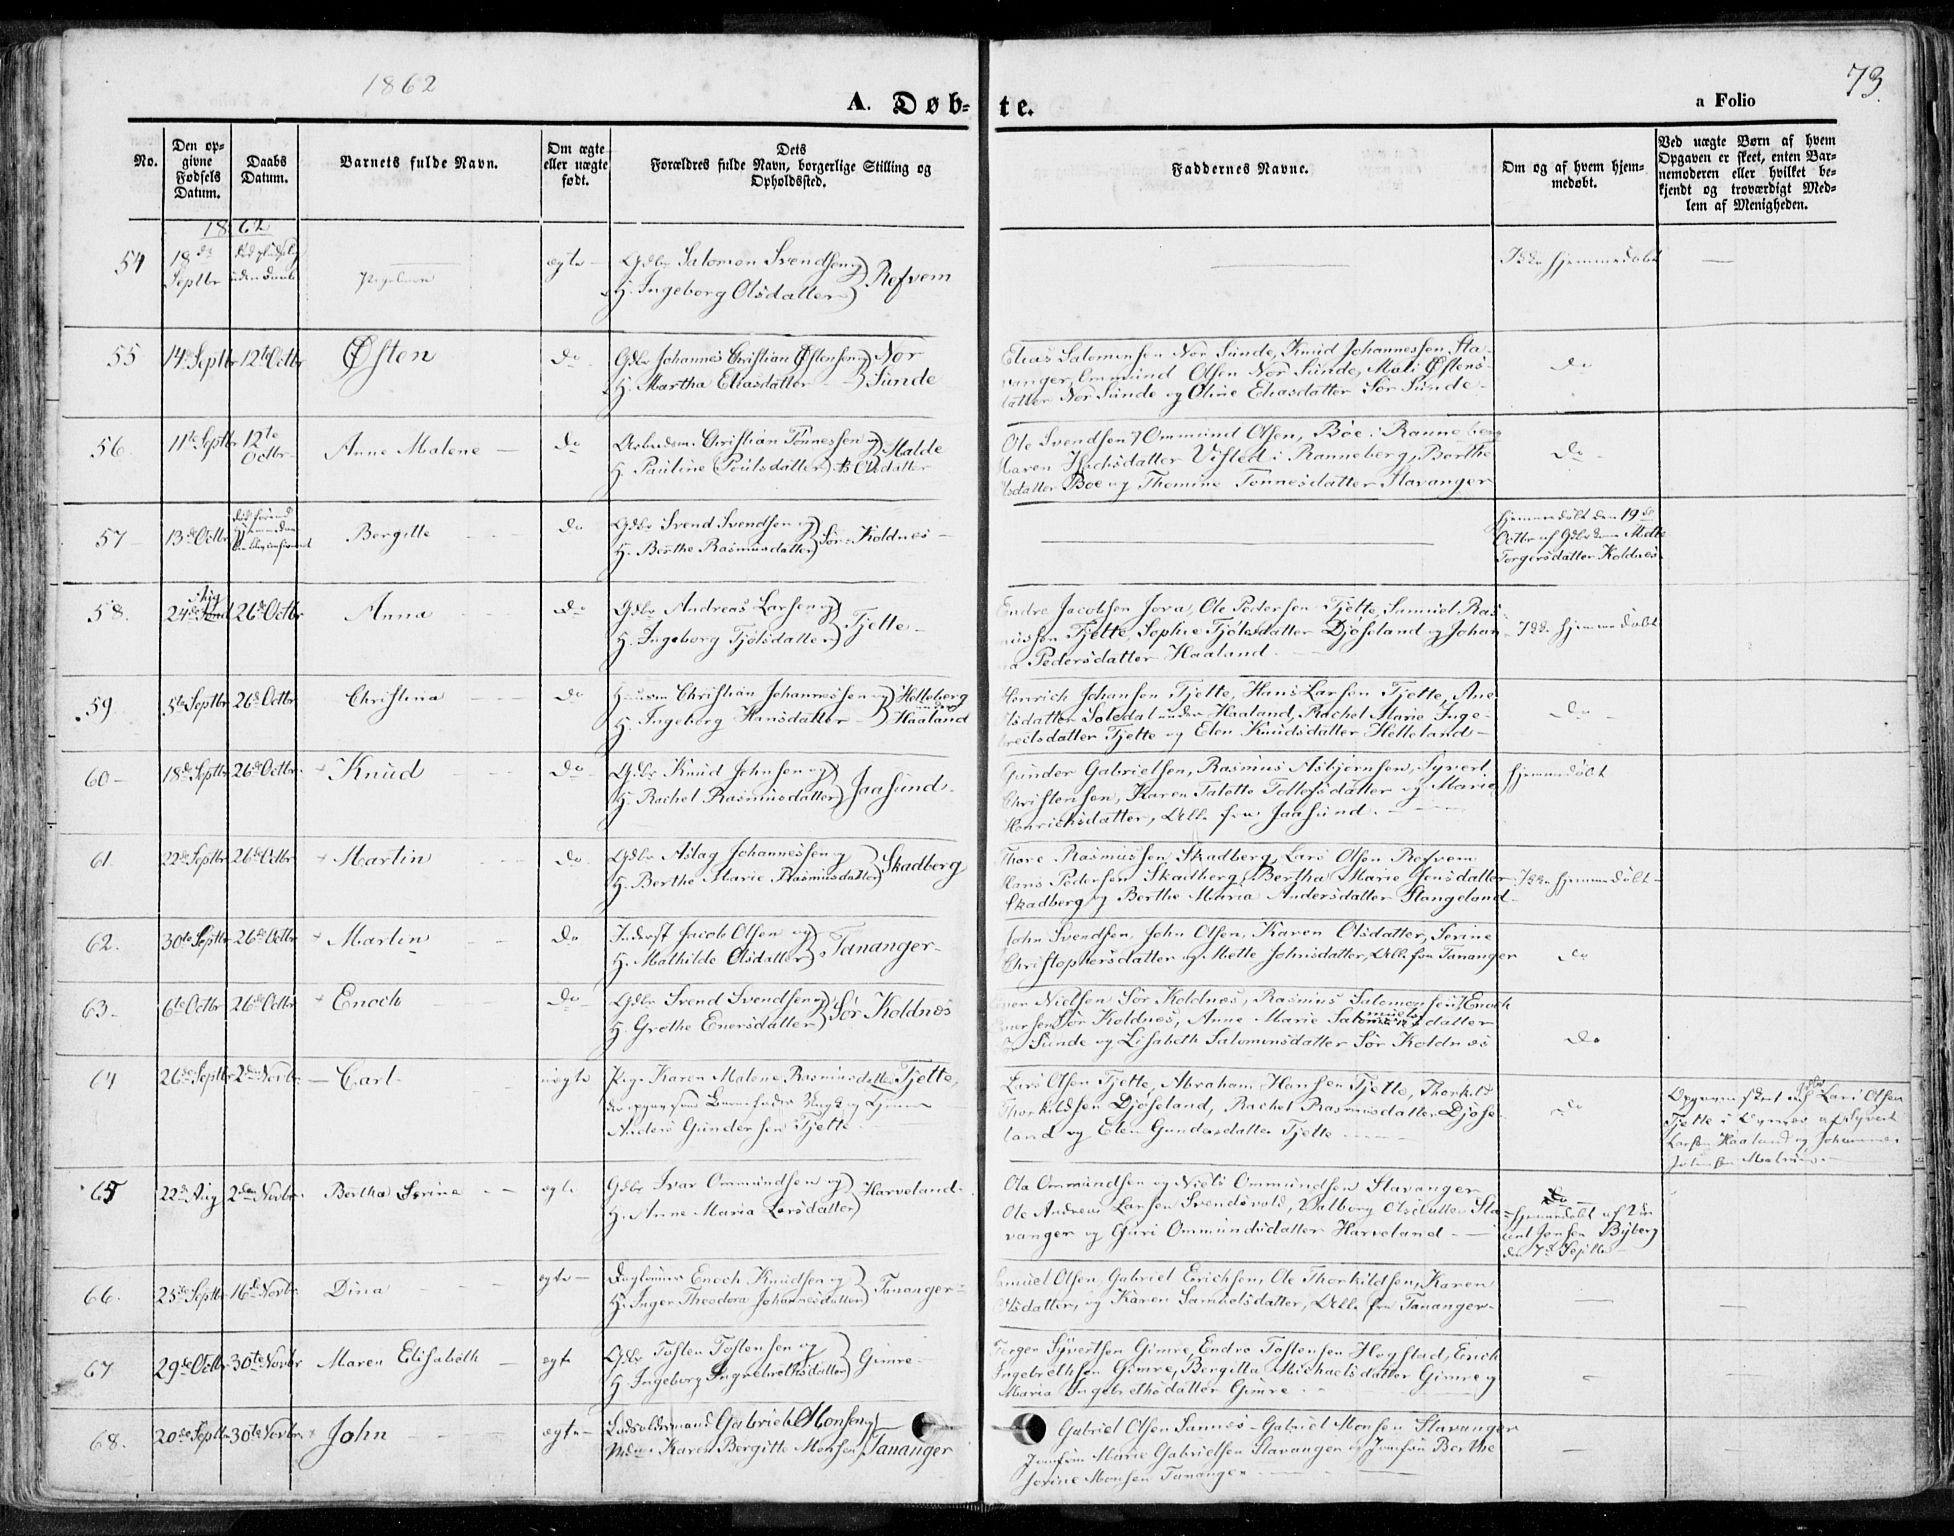 1862
A. Døb-
te.
a Folio
73.
No.
Den op-
givne
Fødsels
Datum.
Daabs
Datum.
Barnets fulde Navn.
Om ægte
eller uægte
født.
Dets
Forældres fulde Navn, borgerlige Stilling og
Opholdssted.
Faddernes Navne.
Om og af hvem hjem-
medøbt.
Ved uægte Børn af hvem
Opgaven er skeet, enten Bar-
nemoderen eller hvilket be-
kjendt og troværdigt Med-
lem af Menigheden.
1862
54
18de
Septbr
uden Daab
Pigebarn
ægte
Gdbr Salomon Svendsen og
H. Ingeborg Olsdatter
Refvem
Ikke hjemmedøbt
55
14de Septbr
12te Octbr
Østen
do
Gdbr Johannes Christian Østensen og
H. Martha Eliasdatter
Nor
Sunde
Elias Salomonsen Nor Sunde, Knud Johannessen Sta-
vanger, Ommund Olsen Nor Sunde, Mali Østens-
datter Nor Sunde og Oline Eliasdatter Sør Sunde
do
56
11te Septbr
12te
Octbr
Anne Malene
do
Arbeidsm. Christian Tønnessen og
H. Pauline Poulsdatter Olsdatter
Malde
Ole Svendsen, Ommund Olsen, Bøe i Ranneberg
Maren Vistad i Ranneberg, Berthe
Olsdatter Bøe og Thomine Tønnesdatter Stavanger
do
57
13de Octbr
Bergitte
do
Gdbr Svend Svendsen og
H. Berthe Rasmusdatter
Sør Koldnes
hjemmedøbt den 19de
Octbr af Mette
Torgersdatter Koldnes
58.
Aug
24de
26de Octbr
Anna
do
Gdbr Andreas Larsen og
H. Ingeborg Tjølsdatter
Tjelte
Endre Jacobsen Jova, Ole Pedersen Tjelte, Samuel Ras-
mussen Tjelte, Sophie Tjølsdatter Djøseland og Johan-
na Pedersdatter Haaland.
Ikke hjemmedøbt
59
5te Septbr
26de Octbr
Christina
do
Christian Johannessen og
H. Ingeborg Hansdatter
Helleberg
under
Haaland
Henrich Johansen Tjelte, Hans Larsen Tjelte, Ane
Olsdatter under Haaland, Rachel Marie Inge-
bretsdatter Tjelte og Elen Knudsdatter Helleland
do
60
18de Septbr
26de Octbr.
Knud
do
Gdbr Knud Johnsen og
H. Rachel Rasmusdatter
Jaasund
Gunder Gabrielsen, Rasmus Asbjørnsen, Syvert
Christensen, Karen Talette Tollefsdatter og Marie
Henrichsdatter, Alle fra Jaasund.
hjemmedøbt
61.
22de Septbr
26de Octbr
Martin
do
Gdbr Aslag Johannessen og
H. Berthe Marie Rasmusdatter
Skadberg
Thore Rasmussen Skadberg, Lars Olsen Refvem
Hans Pedersen Skadberg, Bertha Marie Jensdatter
Skadberg og Berthe Maria Andersdatter Stangeland
Ikke hjemmedøbt
62.
30te Septbr
26de Octbr
Martin
do
Inderst Jacob Olsen og
H. Mathilde Olsdatter
Tananger
John Svendsen, John Olsen, Karen Olsdatter, Serine
Christophersdatter og Mette Johnsdatter, Alle fra Tananger
do
63.
6te Octbr
26de Octbr
Enoch
do
Gdbr Svend Svendsen og
H. Grethe Enersdatter
Sør Koldnes
Ener Nielsen Sør Koldnes, Rasmus Salomonsen, Enoch
Enersen Sør Koldnes, Anne Marie Samuelsdatter
Sunde og Lisabeth Salomonsdatter Sør Koldnes
do
64
26de Septbr
2den Novbr.
Carl
uægte
Pige Karen Malene Rasmusdatter Tjelte,
Anders Gundersen Tjelte.
Lars Olsen Tjelte, Abraham Hansen Tjelte, Thorkild
Thorkildsen Djøseland, Rachel Rasmusdatter Djøse-
land og Elen Gundersdatter Tjelte
do
Opgaven skeet af Gdbr Lars Olsen
Tjelte i Syvert
Larsen Haaland og Johannes
65
22de Aug
2den Novbr.
Bertha Serine
ægte
Gdbr Ivar Ommundsen og
H. Anne Maria Larsdatter
Harveland
Ola Ommundsen og Niels Ommundsen Stavanger
Ole Andreas Larsen Svendsvold, Valborg Olsdatter Sta-
vanger og Guri Ommundsdatter Harveland
do
hjemmedøbt af
Jensen Byberg
den 7de Septbr
66.
25de Septbr
16de Novbr.
Dina
ægte
Daglønner Enoch Knudsen og
H. Inger Theodora Johannesdatter
Tananger
Samuel Olsen, Gabriel Erichsen, Ole Thorkildsen, Karen
Olsdatter, og Karen Samuelsdatter, Alle fra Tananger
67
29de Octbr
30te Novbr
Maren Elisabeth
ægte
Gdbr Tosten Tostensen og
H. Ingeborg Ingebrethsdatter
Gimre
Torger Syvertsen Gimre, Endre Tostensen Hogstad, Erich
Ingebrethsen Gimre, Bergitta Michaelsdatter Gimre og
Maria Ingebrethsdatter Gimre
68.
20de Septbr
30te Novbr.
John
ægte
Gabriel Monsen og
Karen Bergitte Monsen
Tananger
Gabriel Olsen Sannes, Gabriel Monsen Stavanger
Jomfru Marie Gabrielsen Stavanger og Jomfru Berthe
Serine Monsen Tananger